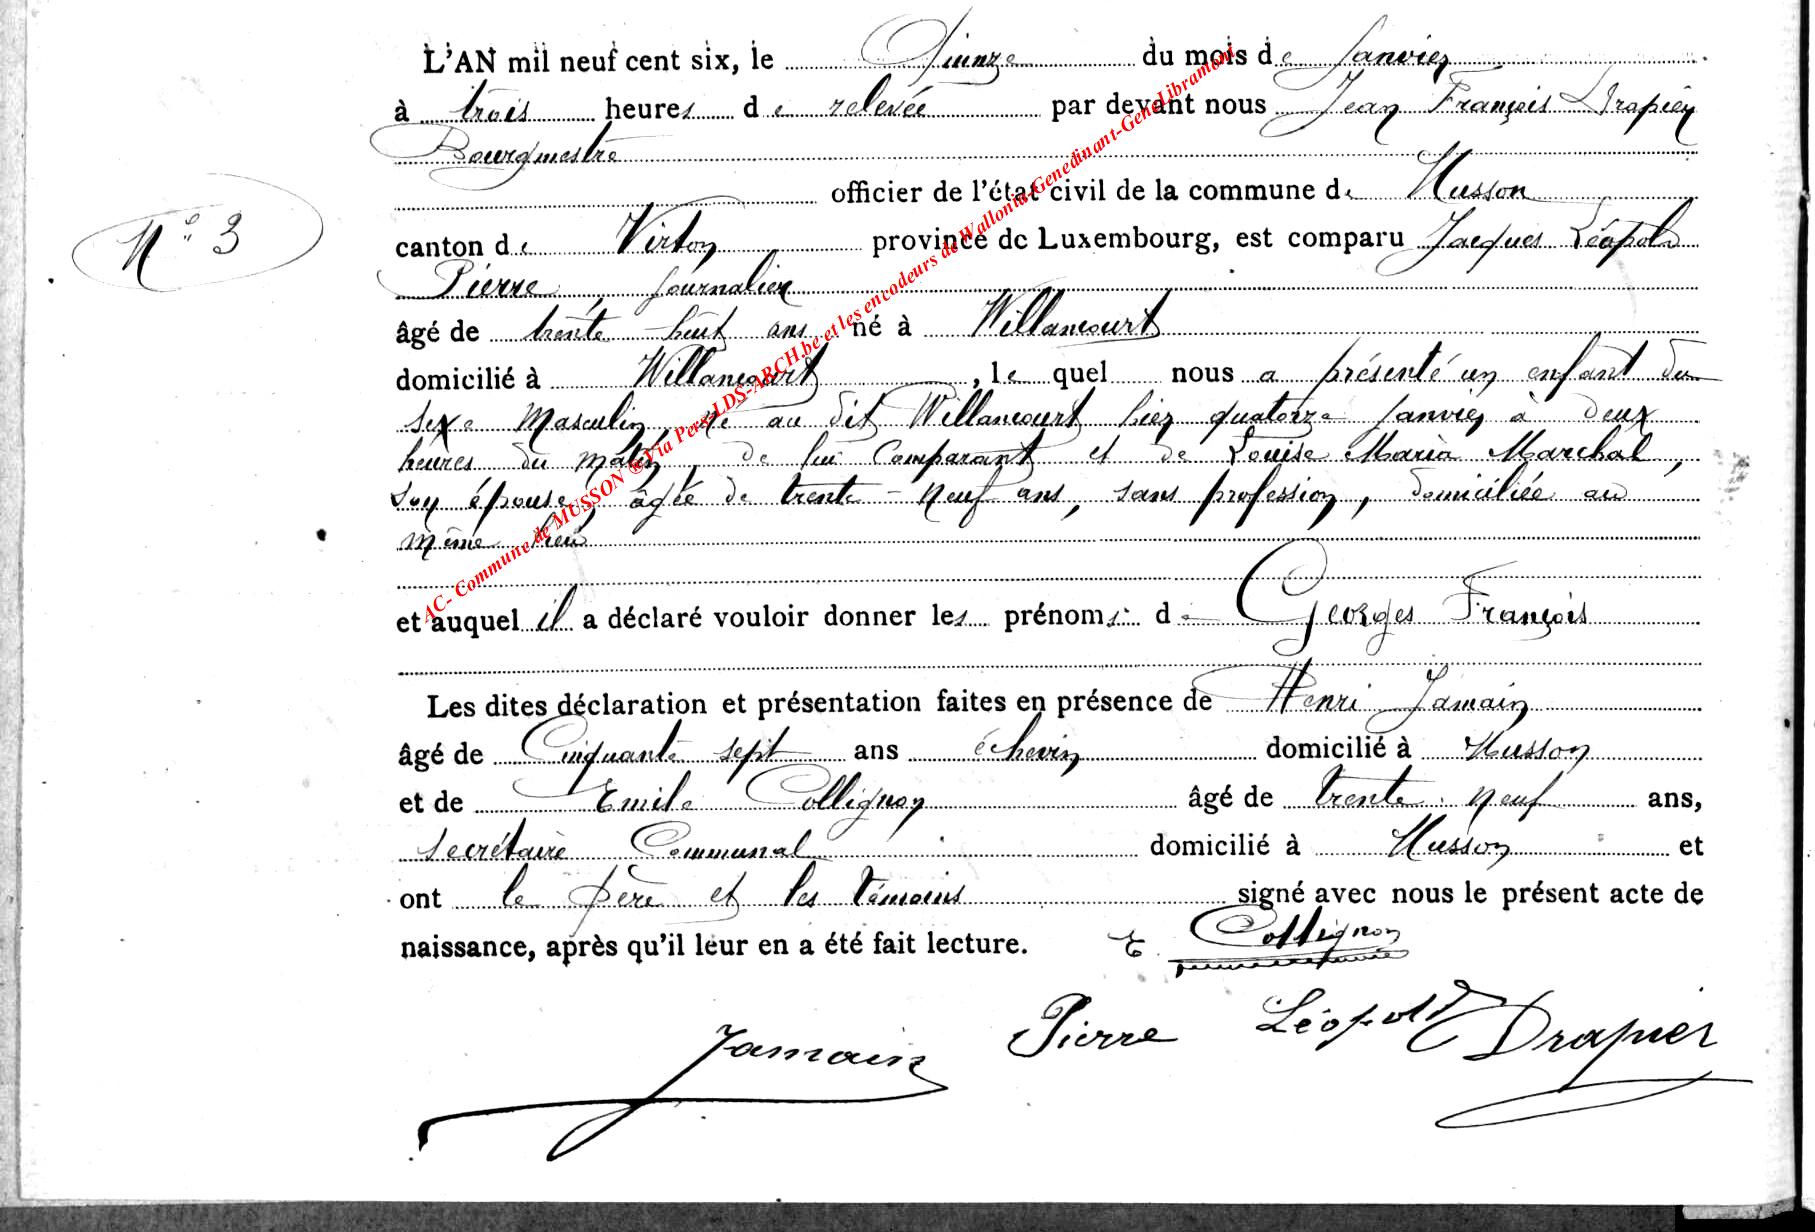 L'AN mil neuf cent six, le Quinze du mois de Janvier
à trois heures de relevée par devant nous Jean François Drapier
Bourgmestre
officier de l'état civil de la commune de Musson
N° 3
canton de Virton province de Luxembourg, est comparu Jacques Léopold
Pierre, journalier
âgé de trente-huit ans, né à Willancourt
domicilié à Willancourt, le quel nous a présenté un enfant du
sexe Masculin, né au dit Willancourt hier quatorze Janvier à deux
heures du matin, de lui Comparant et de Louise Maria Marchal,
son épouse, âgée de trente-neuf ans, sans profession, domiciliée au
même lieu
et auquel il a déclaré vouloir donner les prénoms de Georges François
Les dites déclaration et présentation faites en présence de Henri Jamain
âgé de Cinquante sept ans échevin domicilié à Musson
et de Emile Collignon âgé de trente-neuf ans,
secrétaire Communal domicilié à Musson et
ont le père et les témoins signé avec nous le présent acte de
naissance, après qu'il leur en a été fait lecture. E. Collignon
Jamain Pierre Léopold Drapier
AC- Commune de MUSSON ® Via Pers-LDS-ARCH.be et les encodeurs de Wallonia-Genedinant-GeneLibramont